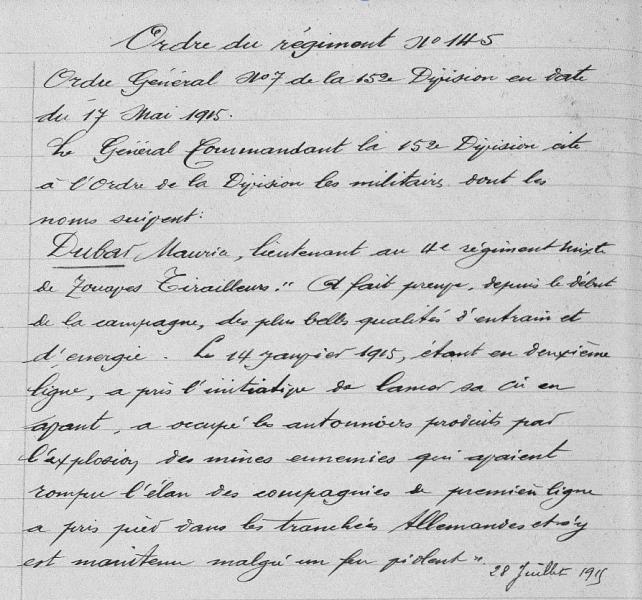 Ordre du régiment No 145
Ordre Général No 7 de la 152e Division en date
du 17 Mai 1915.
Le Général Commandant la 152e Division cite
à l'Ordre de la Division les militaires dont les
noms suivent:
Dubar Maurice, lieutenant au 4e régiment mixte
de Zouaves Tirailleurs. "A fait preuve, depuis le début
de la campagne, des plus belles qualités d'entrain et
d'énergie. Le 14 Janvier 1915, étant en deuxième
ligne, a pris l'initiative de lancer sa Cie en
avant, a occupé les entonnoirs produits par
l'explosion des mines ennemies qui avaient
rompu l'élan des compagnies de première ligne
a pris pied dans les tranchées Allemandes et s'y
est maintenu malgré un feu violent".
28 Juillet 1915